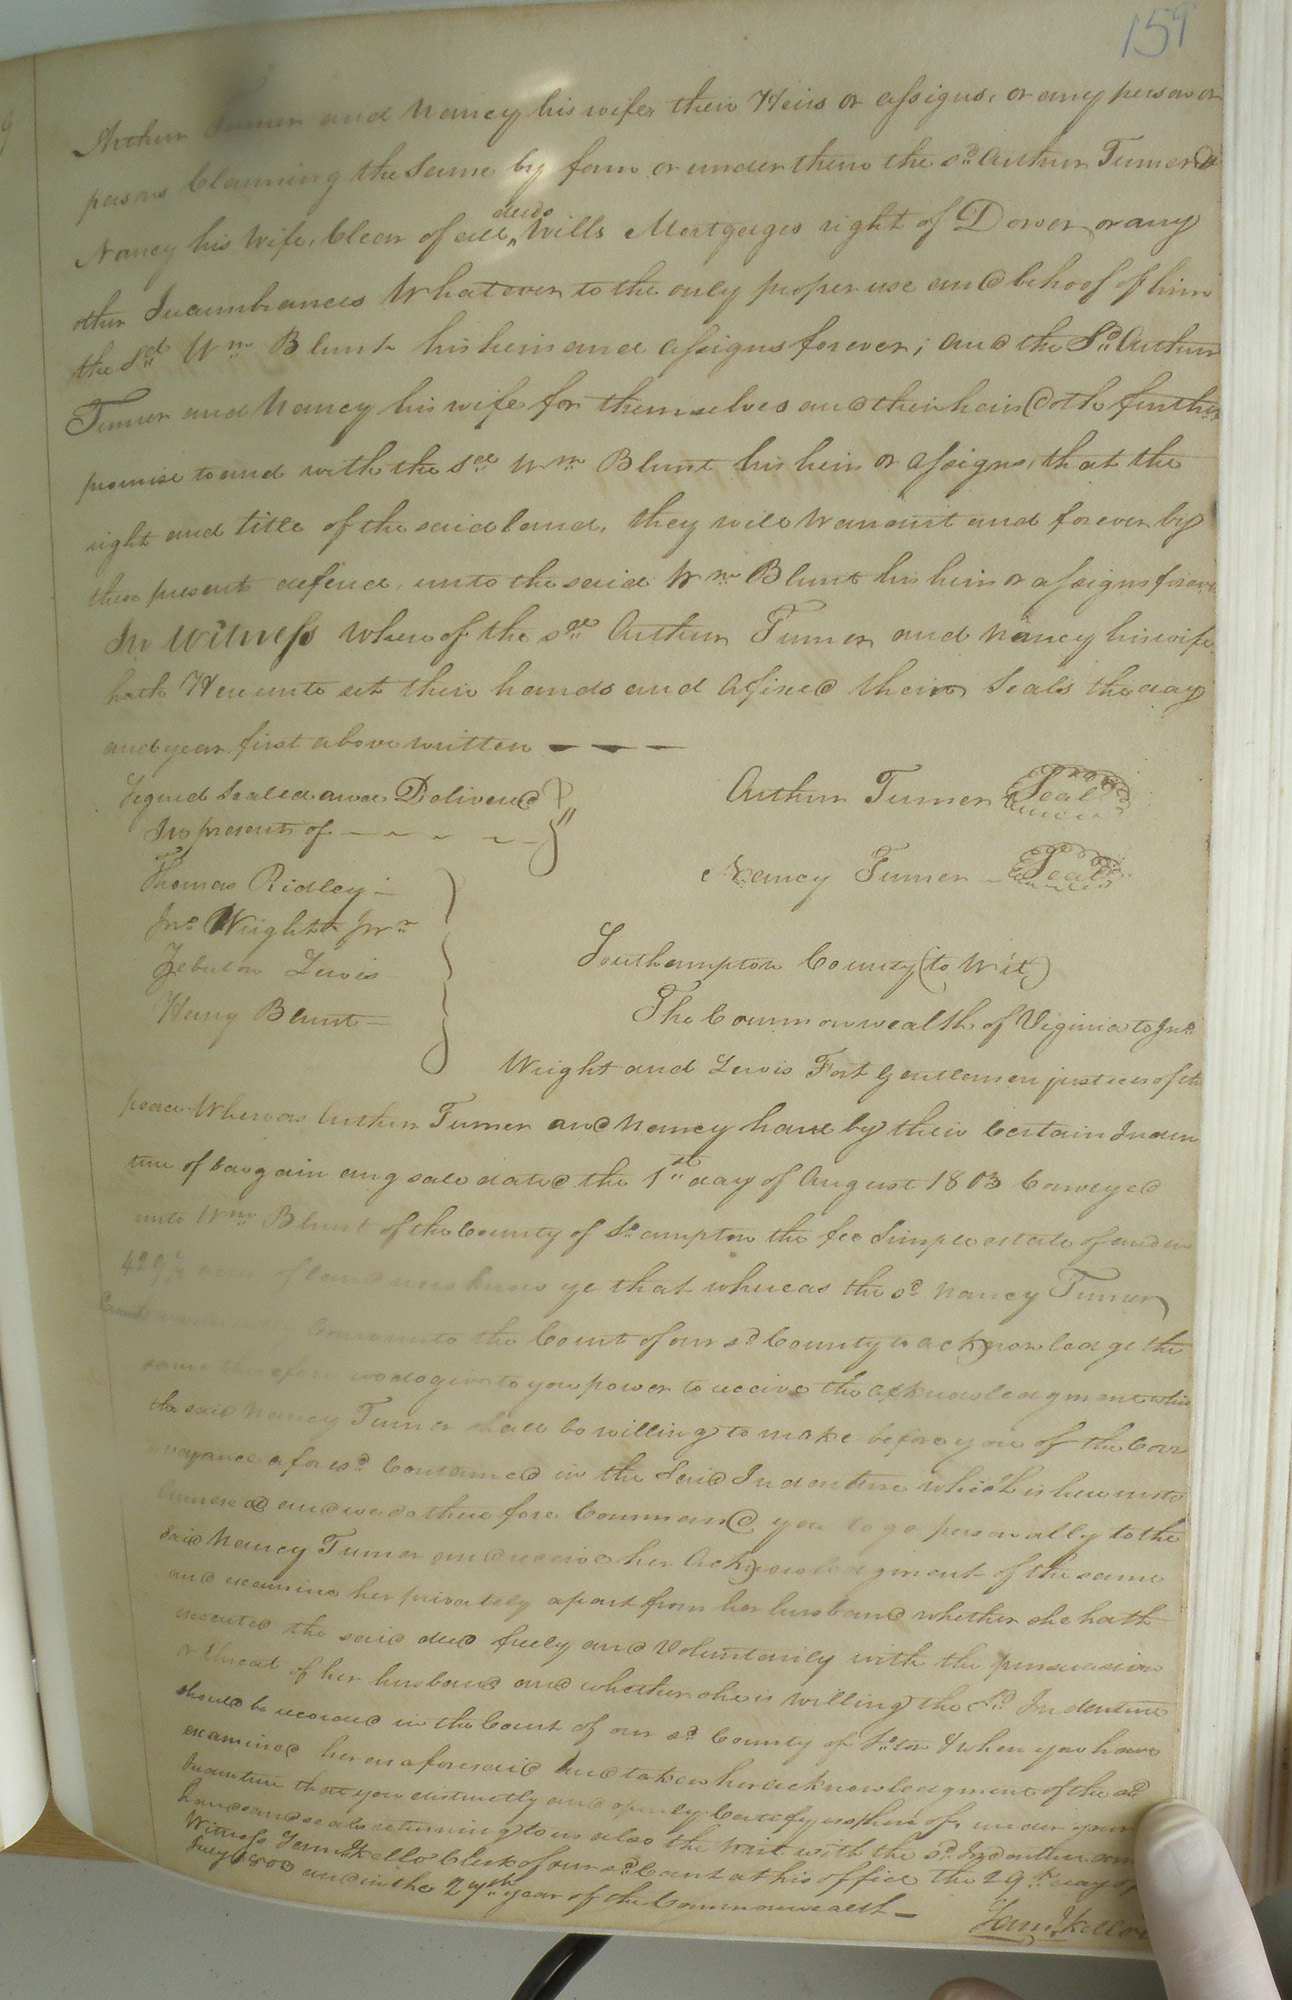 159
Arthur Turner and Nancy his wife, their Heirs or assigns, or any person or
persons Claiming the Same by from or under them the sd. Arthur Turner &
Nancy his Wife, Clear of all deeds Wills Mortgages right of Dower, or any
other Incumbrances Whatever to the only proper use and behoof of him
the Sd. Wm. Blunt his heirs and assigns forever; and the Sd. Arthur
Turner and Nancy his wife for themselves and their heirs doth further
promise to and with the sd. Wm. Blunt his heirs or assigns, that the
right and title of the said land, they will Warrant and forever by
these present defend, unto the said Wm. Blunt his heirs or assigns forever
In Witness Whereof the sd. Arthur Turner and Nancy his wife
hath Hereunto set their hands and Afixed their Seals the day
and year first above written
Signed Sealed and Delivered
In presents of
Arthur Turner Seal
Nancy Turner Seal
Thomas Ridley
Jno. Wright Jnr.
Zebulon Lewis
Henry Blunt
Southampton County (to Wit)
The Commonwealth of Virginia to Jno.
Wright and Lewis Fort Gentlemen justices of the
peace Whereas Arthur Turner and Nancy have by their Certain Inden
ture of bargain ang sale dated the 1st. day of August 1803 Conveyed
unto Wm. Blunt of the County of So.ampton the fee Simple estate of and in
429 1/2 acres of land know ye that whereas the sd. Nancy Turner
Cannot to the Court of our sd. County to acknowledge the
same therefore we do give to you power to receive the acknowledgment which
the said Nancy Turner shall be willing to make before you of the Con
veyance aforesd. Contained in the Said Indenture which is hereunto
Annexed and we do therefore Command you to go personally to the
said Nancy Turner and receive her Acknowledgment of the same
and examine her privately apart from her husband whether she hath
executed the said deed freely and Voluntarily with the persuasion
or threat of her husband and whether she is willing the Sd. Indenture
should be recorded in the Court of our sd. County of So.ton & when you have
examined her as aforesaid and taken her acknowledgment of the sd.
Indenture that you distinctly and openly Certify us thereof, under your
hands and seals returning to us also the writ with the sd. Indenture
Witness Saml. Kello Clerk of our sd. Court at his office the 29th day of
July 1803 and in the 27th year of the Commonwealth
Saml. Kello